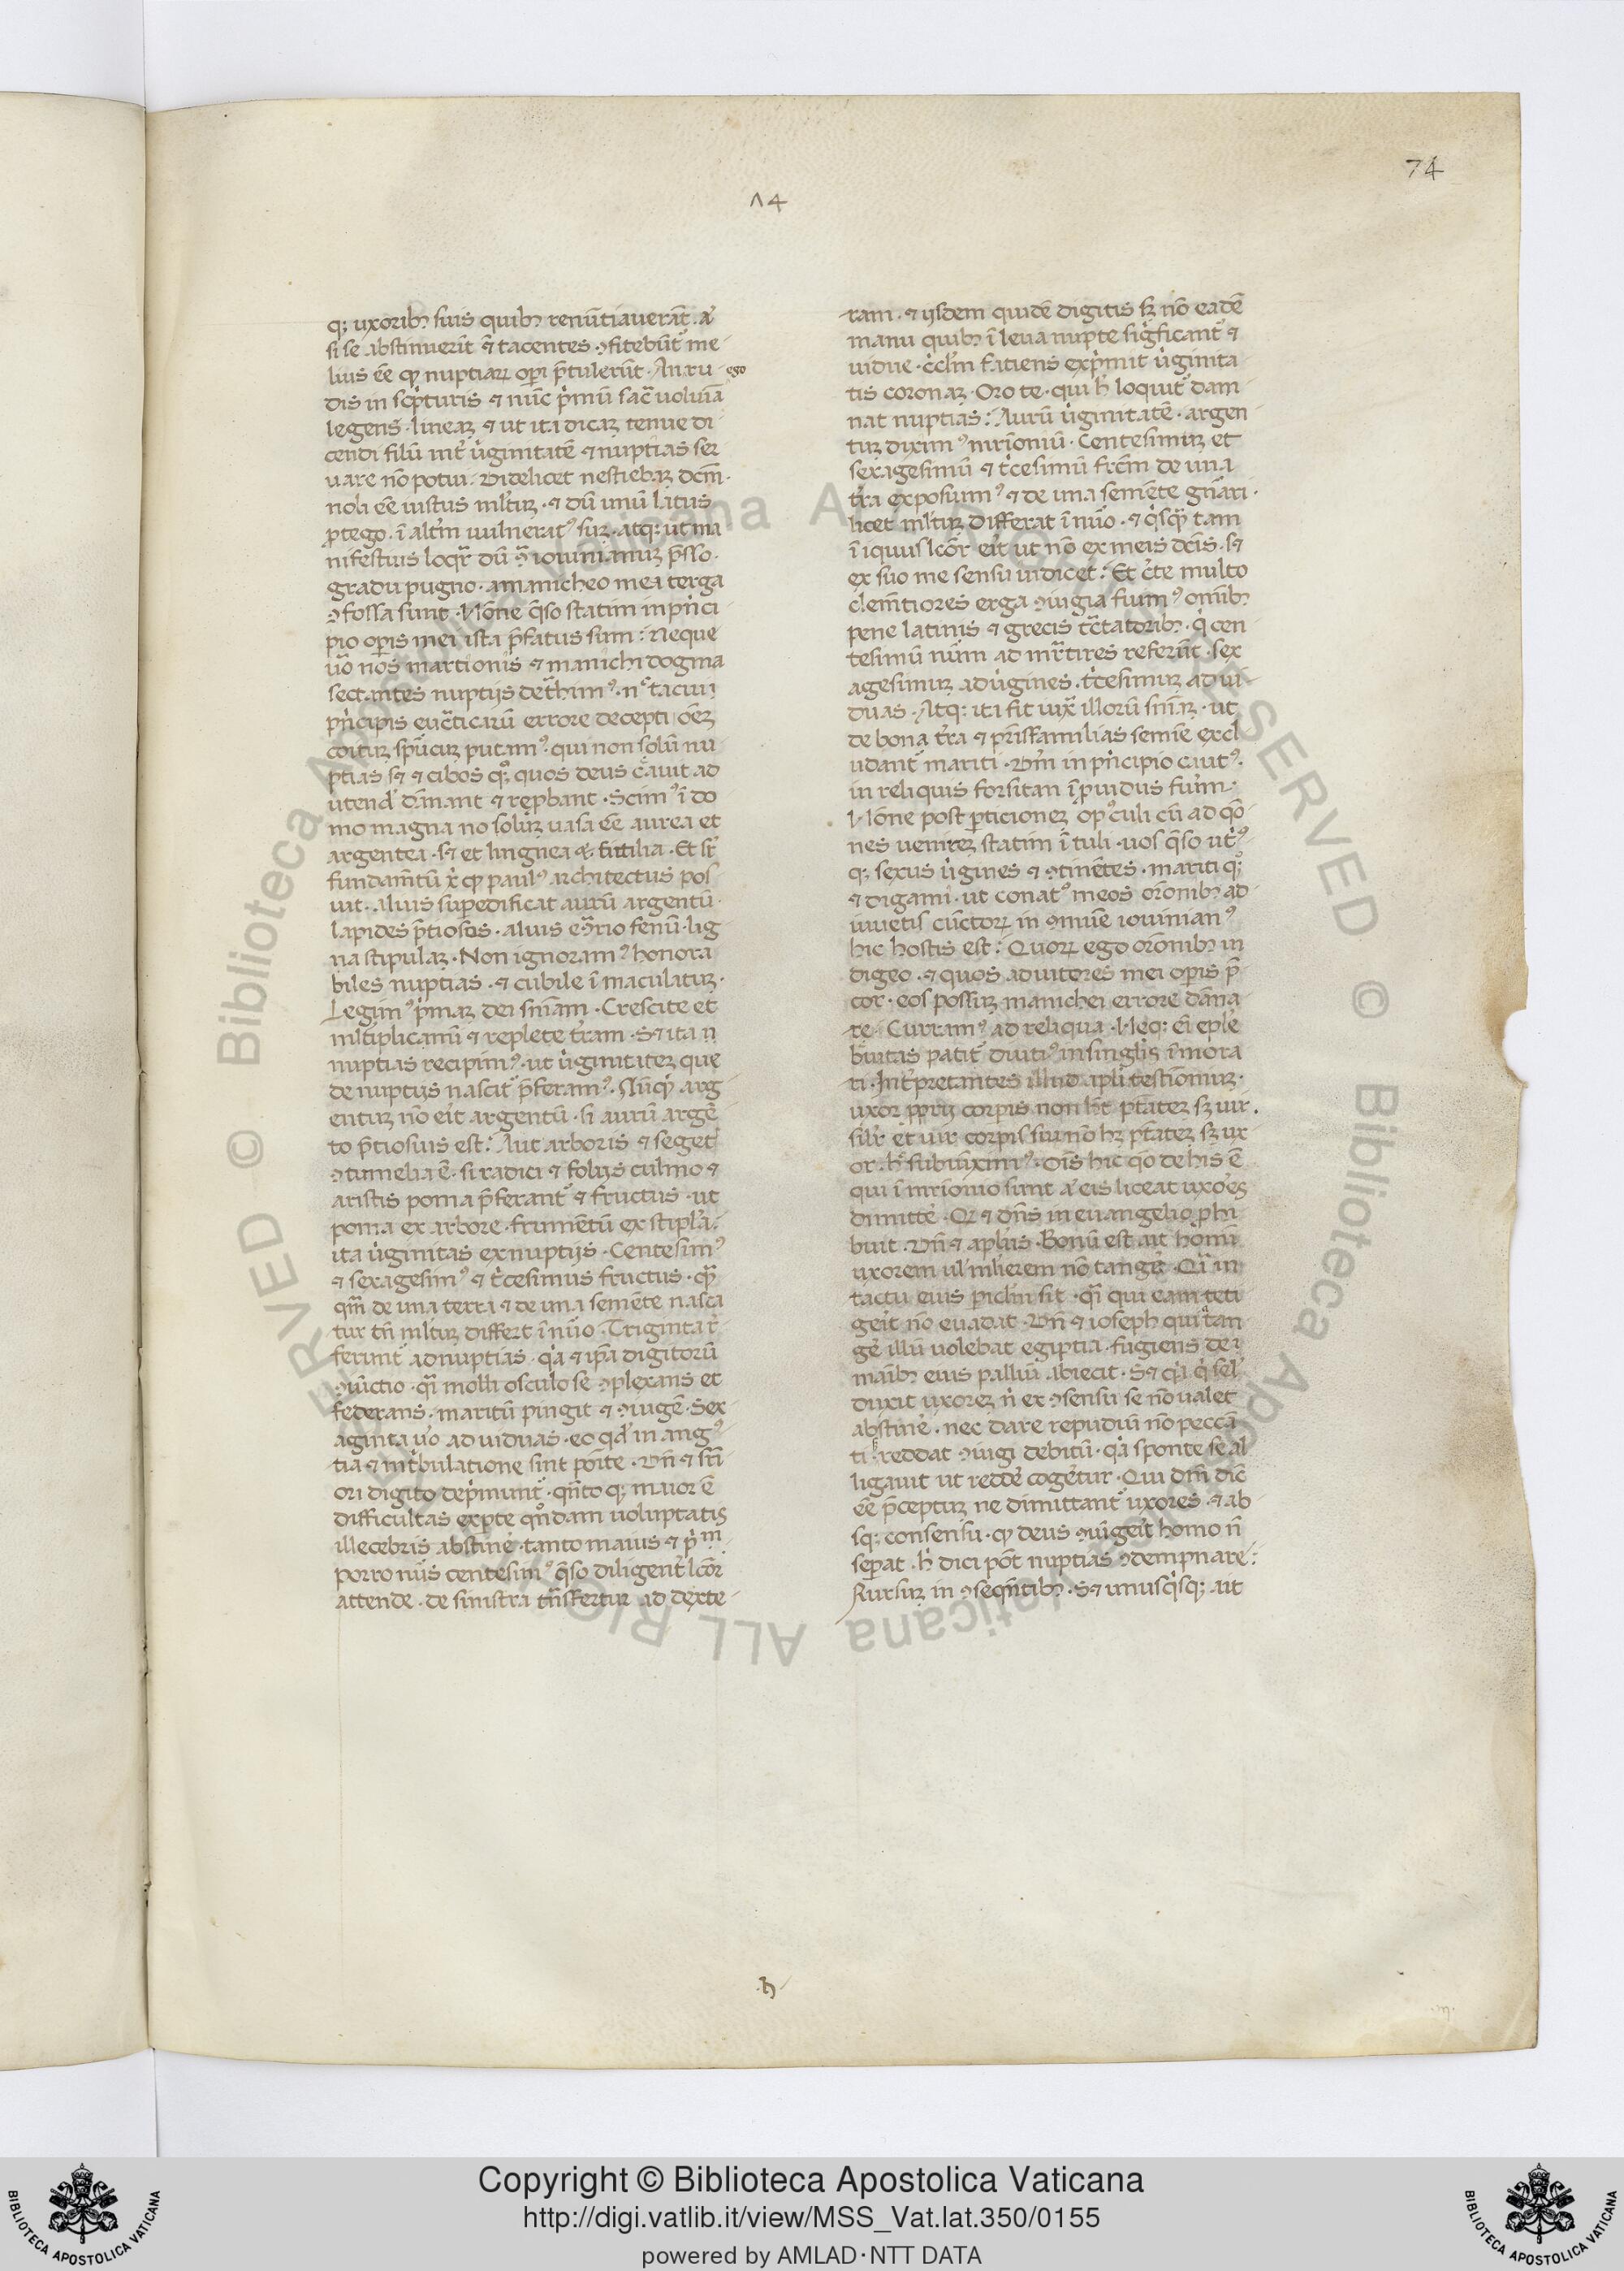 74
14
q; uxorib; suis quib; renũtiaverãt. a͛
si se abstinuerĩt ⁊ tacentes ꝯfitebũt᷑ me
lius eẽ qͫ nuptiaꝝ oꝑi p̃tulerũt. An ru
ego
dis in sc͛pturis ⁊ nũc p͛mũ sac̃ voluĩa
legens. lineaꝫ ⁊ ut ita dicaꝫ tenue di
cendi filũ int͛ v͛ginitatẽ ⁊ nuptias ser
vare nõ potui. Videlicet nesciebaꝫ dc̃m.
noli eẽ iustus ml̃tuꝫ. ⁊ dũ unũ latus
ꝓtego. ĩ alt͛m vulneratꝰ suꝫ. atq; ut ma
nifestius loqr̃ dũ ꝯ̃ iovinianuꝫ p̃sso.
gradu pugno. a manicheo mea terga
ꝯfossa sunt. Nõne q̃so statim in pn͛ci
pio oꝑis mei ista p̃fatus sum: Neque
v̾o nos martionis ⁊ manichi dogma
sectantes nuptijs det͛himꝰ. n͛ tatiani
pn͛cipis euc̃ticarũ errore decepti oẽꝫ
coituꝫ spũcuꝫ putamꝰ. qui non solũ nu
ptias sꝫ ⁊ cibos q;ͦ quos deus c͛avit ad
utend͛ dãnant ⁊ reꝓbant. Scimꝰ ĩ do
mo magna no soluꝫ vasa eẽ aurea et
argentea. sꝫ et lingnea ⁊ fictilia. Et sr̃
fundam̃tũ x͛ qͫ paulꝰ architectus pos
uit. aluis suꝑedificat aurũ argentũ.
lapides p̃tiosos. aluis eꝯ̃rio fenũ. lig
na stipulaꝫ. Non ignoramꝰ honora
biles nuptias. ⁊ cubile ĩmaculatuꝫ.
Legimꝰ p͛maꝫ dei sñiam. Crescite et
ml̃tiplicamĩ ⁊ replete t͛ram. Sꝫ ita ñ
nuptias recipimꝰ. ut v͛ginitateꝫ que
de nuptiis nascit᷑ p̃feramꝰ. Nũq͛ arg
entuꝫ nõ eit͛ argentũ. si aurũ argẽ
to p̃tiosius est: Aut arboris ⁊ seget͛
ꝯtumelia ẽ. si radici ⁊ folijs culmo ⁊
aristis poma p̃ferant᷑ ⁊ fructus. ut
poma ex arbore. frumẽtũ ex stipl̃a.
ita v͛ginitas ex nuptijs. Centesimꝰ
⁊ sexagesimꝰ ⁊ t͛cesimus fructus. q̃
qm̃ de una terra ⁊ de una semẽte nasca
tur tñ ml̃tuꝫ differt ĩ nũo. Triginta r͛
ferunt᷑ ad nuptias. q͛a ⁊ ip̃a digitorũ
ꝯiũctio. q̃i molli osculo se ꝯplexans et
federans. maritũ pingit ⁊ ꝯiugẽ. Sex
aginta v̾o ad viduas. eo qd͛ in angꝰ
tia ⁊ int͛bulatione sint põite. Vñ ⁊ sũ
ori digito dep͛munt᷑. qñto q; maior ẽ
difficultas exꝑte qñdam voluptatis
illecebris abstiner͛. tanto maius ⁊ p͛m̃
porro nũs centesimꝰ q̃so diligent͛ lcõr
attende. de sinistra tñsfertur ad dexte
ram. ⁊ ijsdem quidẽ digitis sꝫ nõ eadẽ
manu quib; ĩ leva nupte sig͛ficant᷑ ⁊
vidue. c͛cl̃m fatiens exp͛mit v͛ginita
tis coronaꝫ. Oro te. qui h̾ loquit᷑ dam
nat nuptias: Aurũ v͛ginitatẽ. argen
tuꝫ diximꝰ mr̃ioniũ. Centesimuꝫ et
sexagesimũ ⁊ t͛cesimũ frc̃m de una
t͛ra exposuimꝰ ⁊ de una semẽte gñari.
licet ml̃tuꝫ differat ĩ nũo. ⁊ q͛sq͛ tam
ĩiquus lcõr eit͛ ut nõ ex meis dc̃is. sꝫ
ex suo me sensu iudicet: Et c͛te multo
clem̃tiores erga ꝯiugia fuimꝰ omĩb;
pene latinis ⁊ grecis tc̃tatorib;. q͛ cen
tesimũ nũm ad mr̃tires referũt. sex
agesimuꝫ ad v͛gines. t͛cesimuꝫ ad vi
duas. Atq; ita fit iux͛ illorũ sñiaꝫ. ut
de bona t͛ra ⁊ pr̃isfamilias semĩe excl
udant᷑ mariti. Vm͛ in pn͛cipio cautꝰ.
in reliquis forsitan ĩꝓvidus fuim͛.
Nõne post ꝑticioneꝫ opꝰculi cũ ad q̃o
nes venireꝫ statim ĩtuli. vos q̃so ut͛ꝰ
q; sexus v͛gines ⁊ ꝯtinẽtes. mariti q;ͦ
⁊ digami. ut conatꝰ meos orõnib; ad
iuvetis cũctoꝝ in ꝯmuẽ iovinianꝰ
hic hostis est: Quoꝝ ego orõnib; in
digeo. ⁊ quos adiutores mei oꝑis p̃
cor. eos possuꝫ manichei errore dãna
re. Curramꝰ ad reliqua. Neq; eĩ eple
bᷓvitas patit᷑ diutiꝰ in singlis͛ ĩmora
ri. Int͛pretantes illud apl̃i testiõniuꝫ.
uxor ꝓprij corꝑis non ht̃ ptãteꝫ sꝫ vir.
sil̃r et vir corꝑis sui nõ hꝫ ptãteꝫ sꝫ ux
or. h̾ subiũximꝰ. Oĩs hic q̃o de his ẽ
qui ĩ mr̃ionio sunt a͛ eis liceat uxo͛es
dimitte͛. Qꝫ ⁊ dñs in evangelio ꝓhi
buit. Vñ ⁊ apl̃us. Bonũ est ait homĩ
uxorem vl͛ ml̃ierem nõ tange͛. Q̃i in
tactu eius ꝑicl̃m sit. q̃i qui eam teti
geit͛ nõ evadat. Vñ ⁊ ioseph quia tan
ge͛ illũ volebat egiptia. fugiens de
manib; eius palliũ abiecit. Sꝫ q͛a q͛ sel̃
duxit uxoreꝫ ñ ex ꝯsensu se nõ valet
abstine͛. nec dare repudiũ nõ peccã
ti reddat ꝯiugi debitũ. q͛a sponte se al
ligavit ut redde͛ coge͛tur. Qui dm̃ dic̃
eẽ p̃ceptuꝫ ne dimittant᷑ uxores. ⁊ ab
sq; consensu. qͫ deus ꝯiũgeit͛ homo ñ
seꝑat. h̾ dici põt nuptias ꝯdempnare:
Rursuꝫ in ꝯseqñtib;. Sꝫ unusq͛sq; ait
Copyright © Biblioteca Apostolica Vaticana
http://digi.vatlib.it/view/MSS_Vat.lat.350/0155
powered by AMLAD·NTT DATA